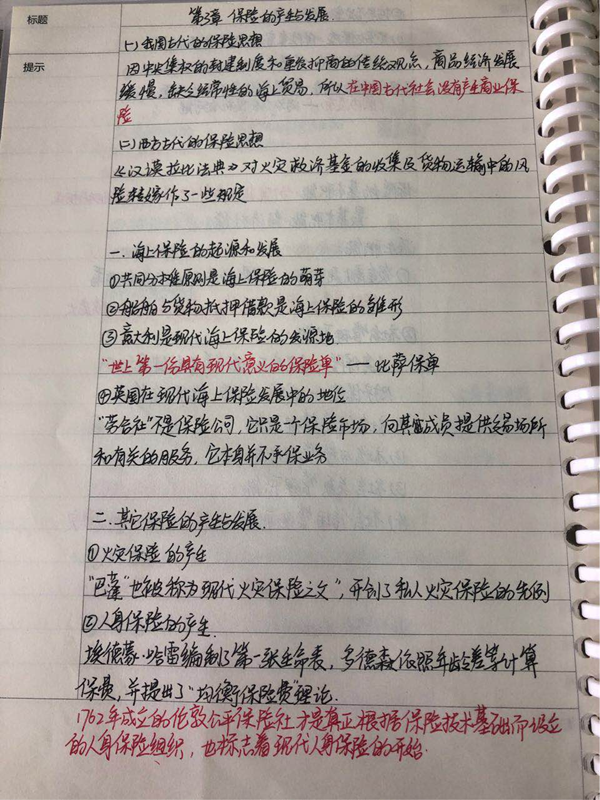 标题
第3章 保险的产生与发展.
提示
(一)我国古代的保险思想
因中央集权的封建制度和重农抑商的传统观点，商品经济发展
缓慢，缺乏经常性的海上贸易，所以在中国古代社会没有产生商业保
险
(二)西方古代的保险思想
《汉谟拉比法典》对火灾救济基金的收集及货物运输中的风
险转嫁作了一些规定
一.海上保险的起源和发展
①共同分摊原则是海上保险的萌芽
②船舶与货物抵押借款是海上保险的雏形
③意大利是现代海上保险的发源地
"世上第一份具有现代意义的保险单"——比萨保单
④英国在现代海上保险发展中的地位
"劳合社"不是保险公司，它只是个保险市场，向其成员提供交易场所
和有关的服务，它本身并不承保业务
二.其它保险的产生与发展.
①火灾保险的产生
"巴蓬"也被称为"现代火灾保险之父"，开创了私人火灾保险的先例
②人身保险的产生.
埃德蒙·哈雷编制了第一张生命表，多德森依照年龄差等计算
保费，并提出了"均衡保险费"理论.
1762年成立的伦敦公平保险社才是真正根据保险技术基础而设立
的人身保险组织，也标志着现代人身保险的开始.